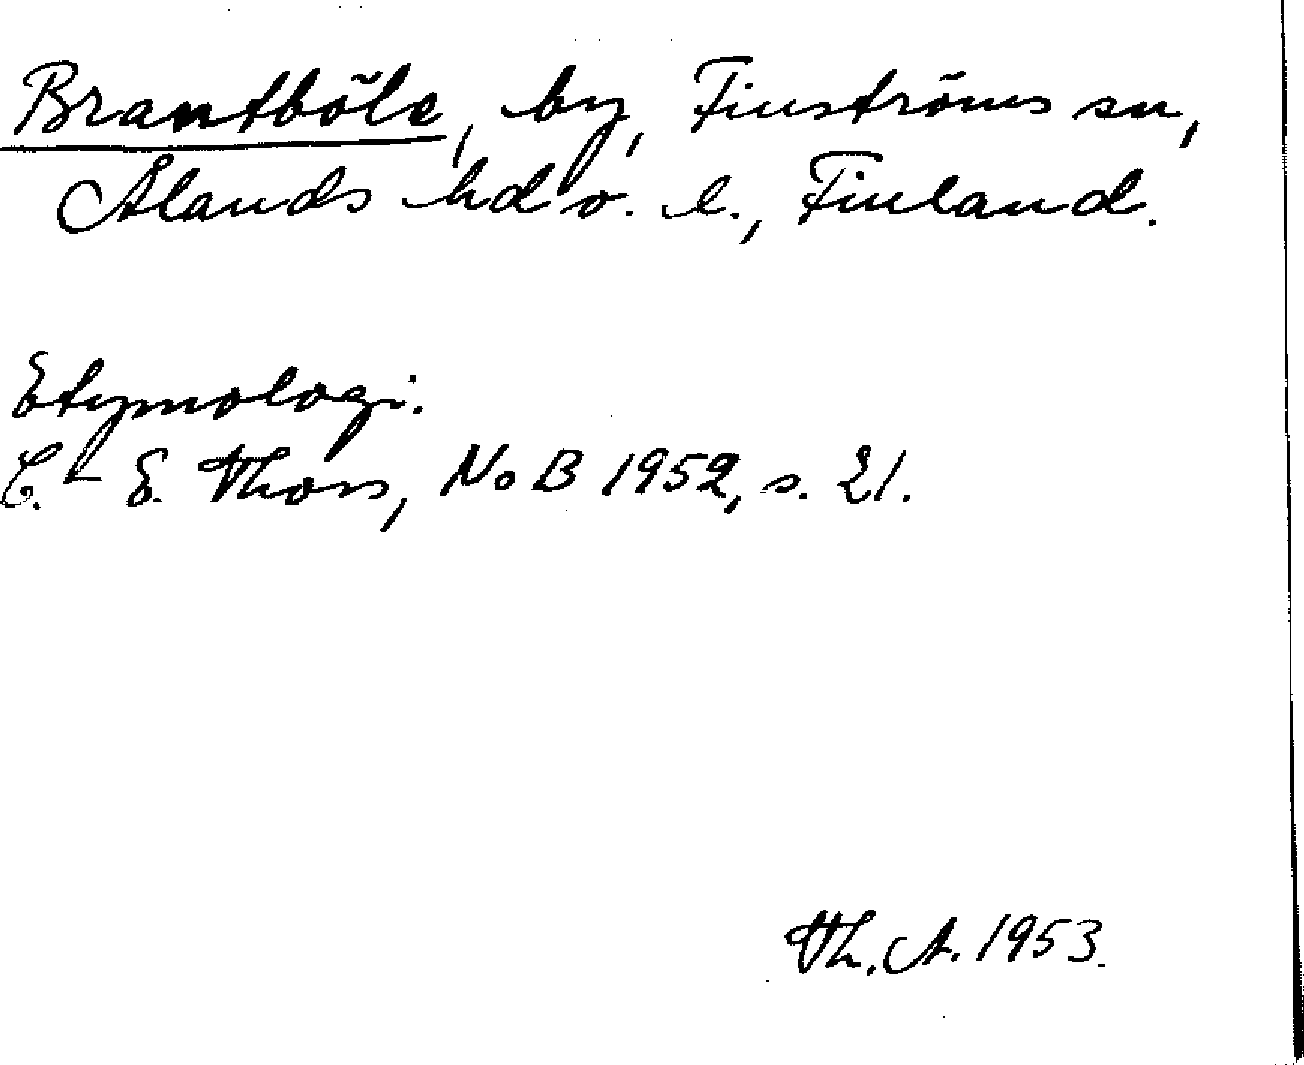 Brantböle, by, Finströms sn,
Ålands hd o. l., Finland.
Etymologi.
C.-E. Thors, NoB 1952, s. 21.
Th. A. 1953.